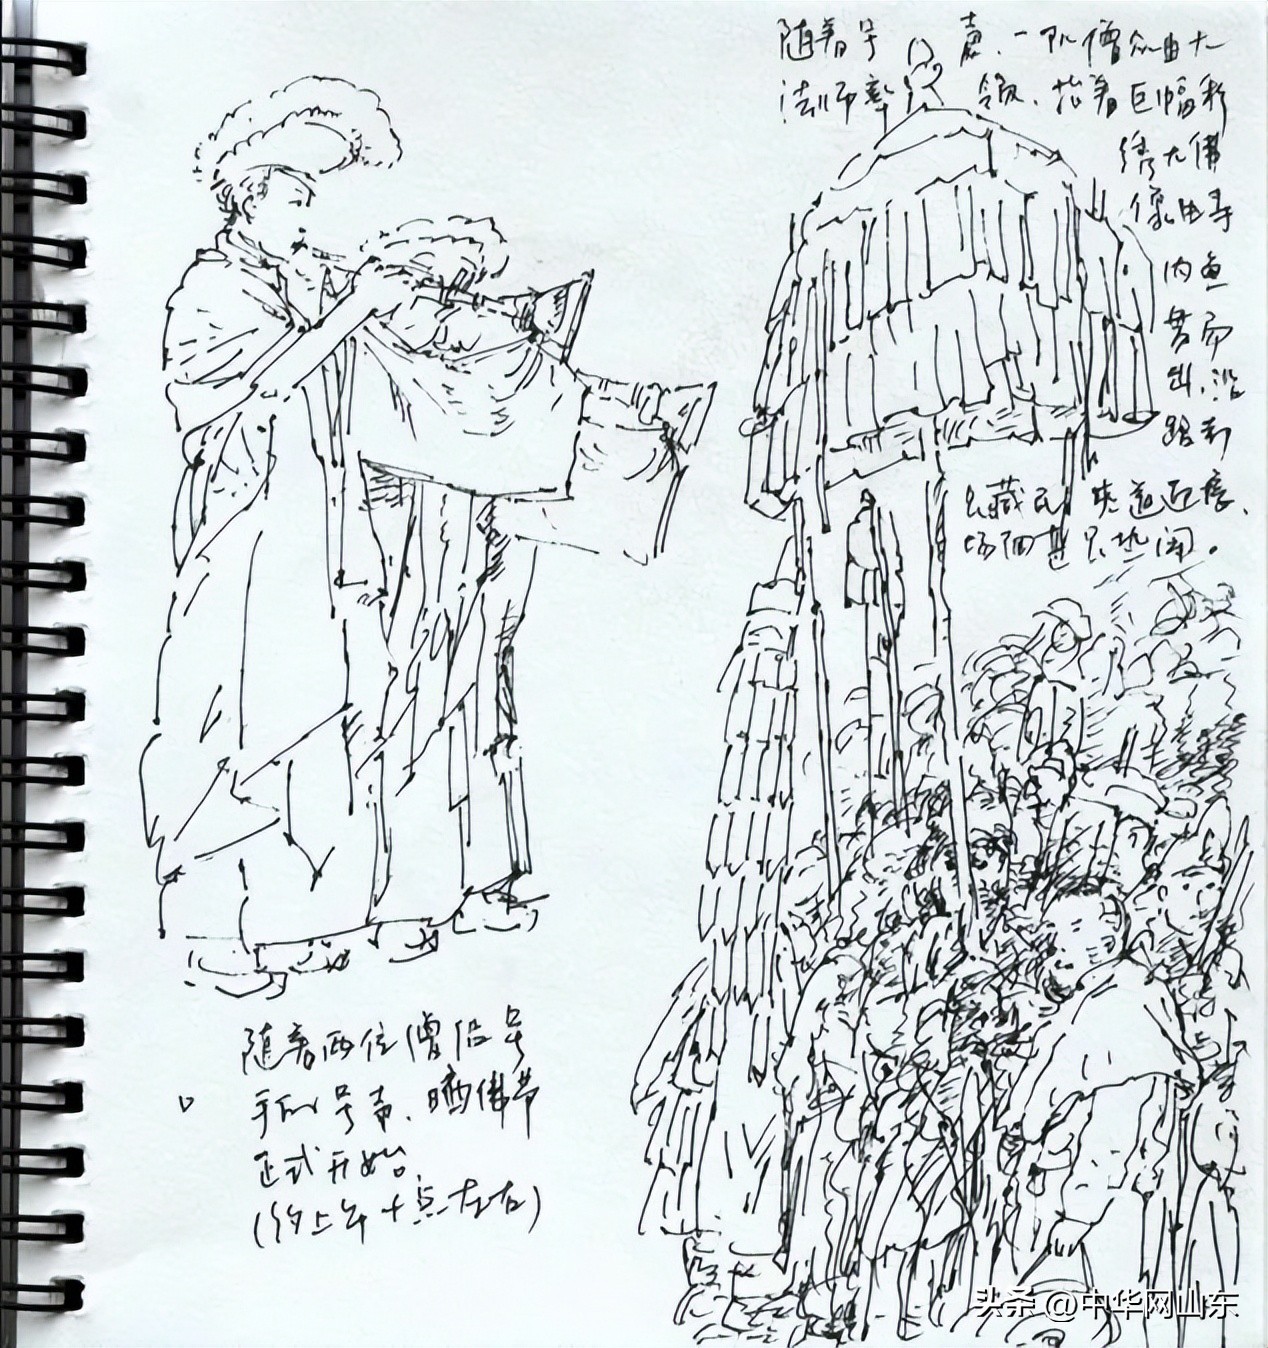 随着号声、一队僧众由大
法师率领、抬着巨幅彩
绣大佛
像由寺
内鱼
贯而
出、沿
路利
藏民 夹道迎
场面甚是热闹。
随着两位僧侣号
手的号声、晒佛节
正式开始
(约上午十点左右)
头条 @中华网山东